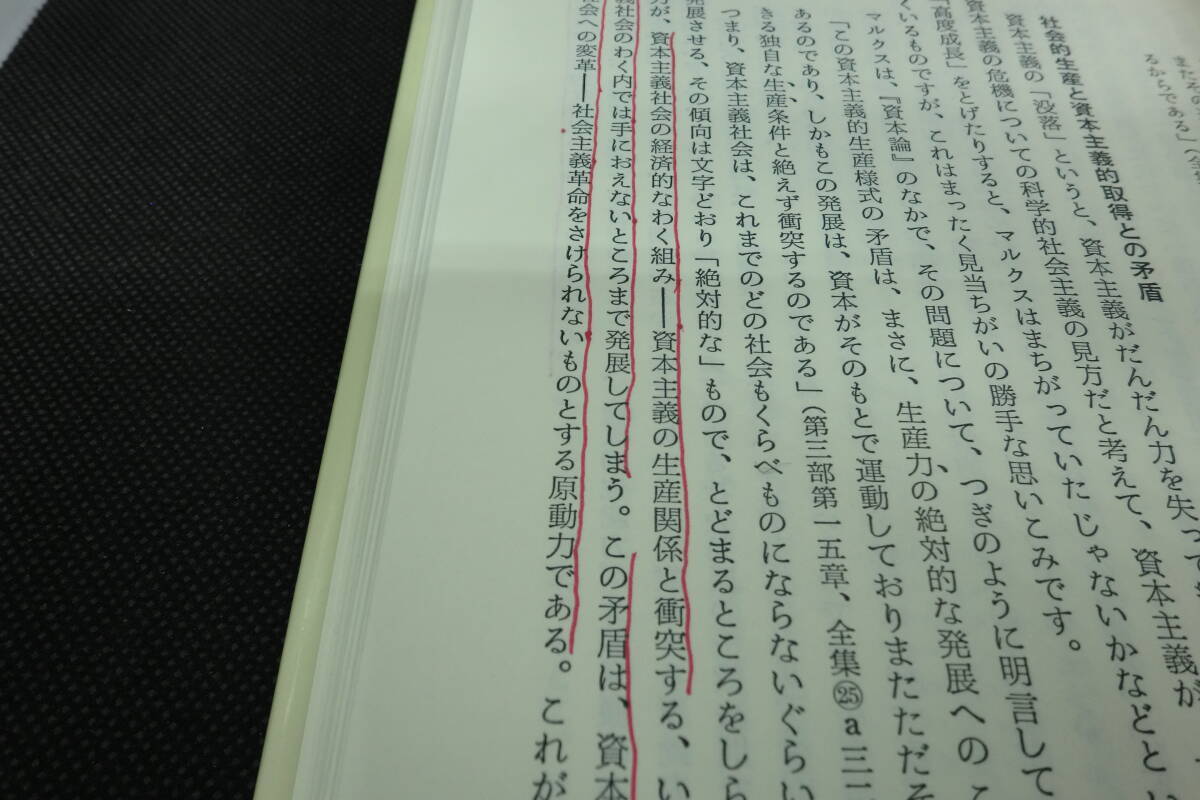 またその
るからである」(全集
社会的生産と資本主義的取得との矛盾
資本主義の「没落」というと、資本主義がだんだん力を失って
資本主義の危機についての科学的社会主義の見方だと考えて、資本主義が
「高度成長」をとげたりすると、マルクスはまちがっていたじゃないかなどと
くいるものですが、これはまったく見当ちがいの勝手な思いこみです。
マルクスは、『資本論』のなかで、その問題について、つぎのように明言して
「この資本主義的生産様式の矛盾は、まさに、生産力の絶対的な発展へのこ
あるのであり、しかもこの発展は、資本がそのもとで運動しておりまたただそ
きる独自な生産条件と絶えず衝突するのである」(第三部第一五章、全集㉕a三二
つまり、資本主義社会は、これまでのどの社会もくらべものにならないぐらい
発展させる、その傾向は文字どおり「絶対的な」もので、とどまるところをしら
が、資本主義社会の経済的なわく組み──資本主義の生産関係と衝突する、い
義社会のわく内では手におえないところまで発展してしまう。この矛盾は、資本
社会への変革──社会主義革命をさけられないものとする原動力である。これが